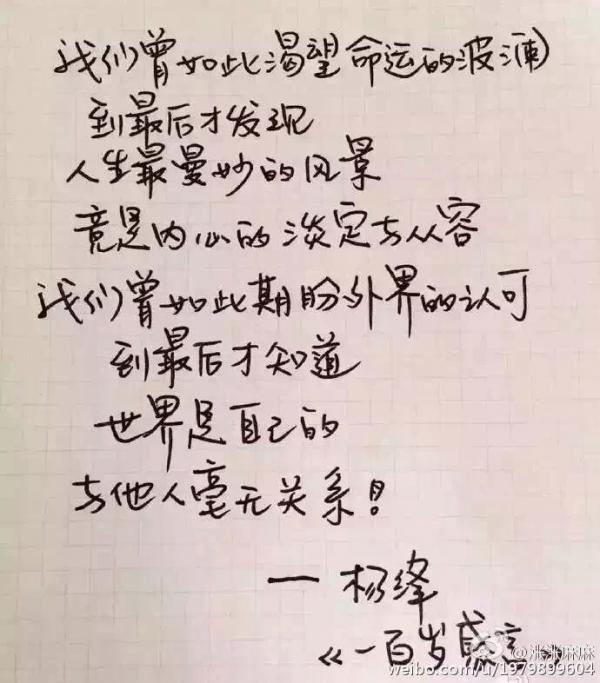 我们曾如此渴望命运的波澜
到最后才发现
人生最曼妙的风景
竟是内心的淡定与从容
我们曾如此期盼外界的认可
到最后才知道
世界是自己的
与他人毫无关系!
— 杨绛
《一百岁感言
@洣洣麻麻
weibo.com/u/1979899604